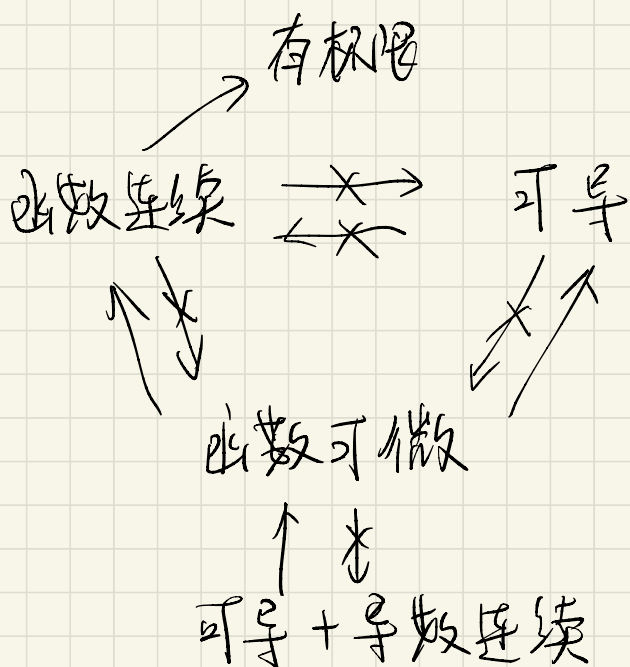 有极限
函数连续 可导
函数可微
可导+导数连续